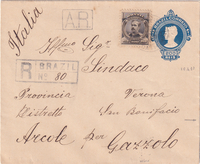 Italia
A.R
Sig.
Sindaco
R BRAZIL
No 80
Provincia Verona
Distretto San Bonifacio
Arcole per
Gazzolo